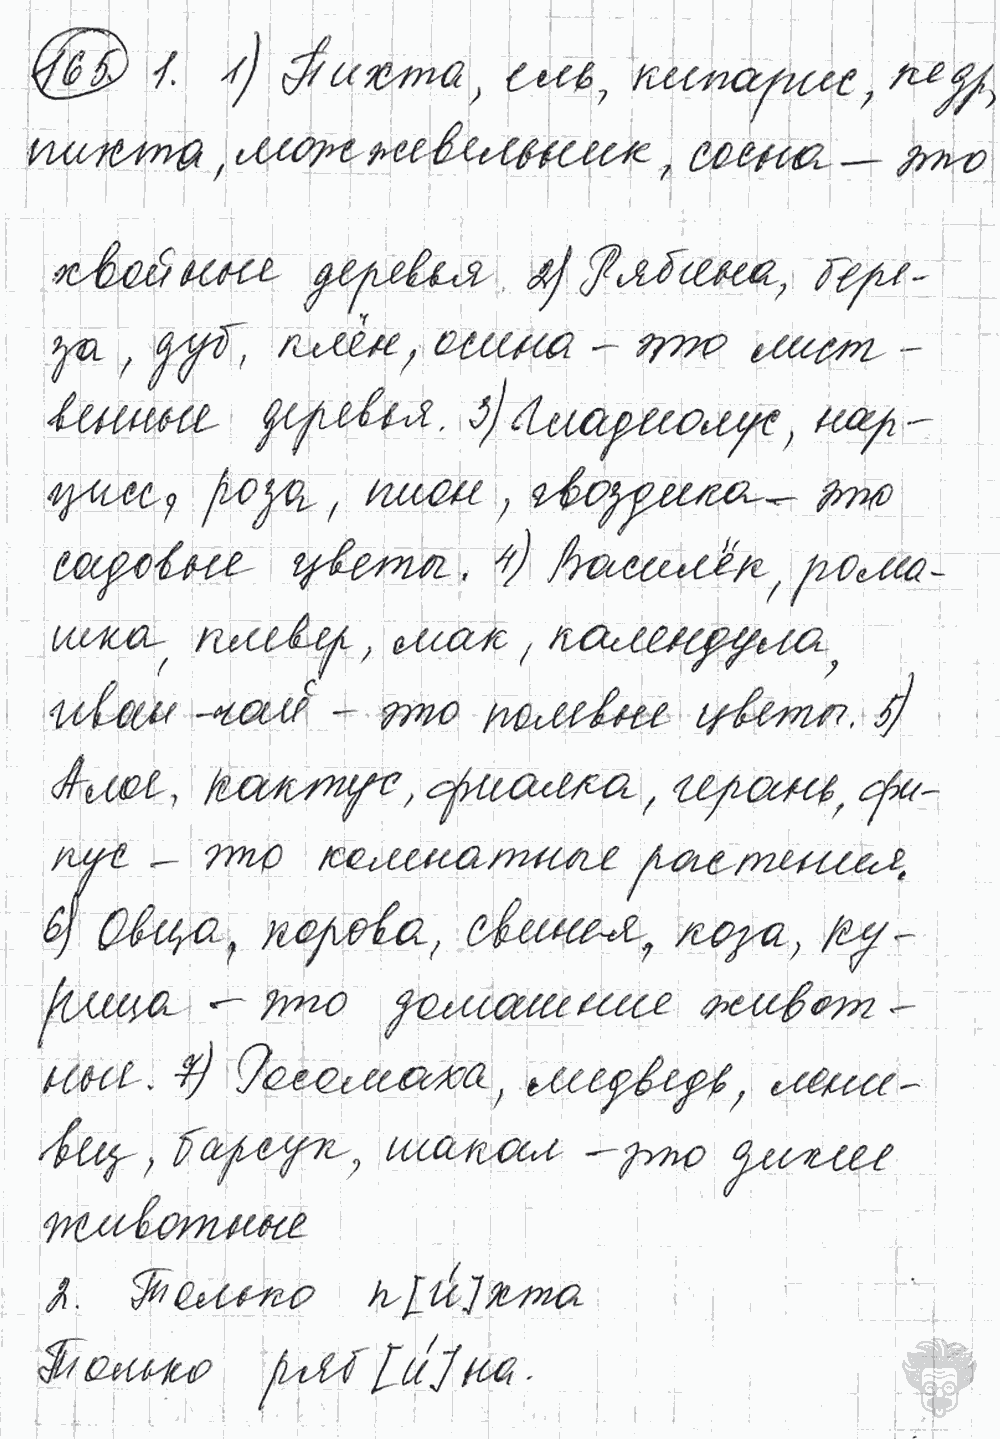 165. 1. 1) Пихта, ель, кипарис, кедр,
пихта, можжевельник, сосна — это
хвойные деревья. 2) Рябина, бере-
за, дуб, клён, осина — это лист-
венные деревья. 3) Гладиолус, нар-
цисс, роза, пион, гвоздика — это
садовые цветы. 4) Василёк, рома-
шка, клевер, мак, календула,
иван-чай — это полевые цветы. 5)
Алоэ, кактус, фиалка, герань, фи-
кус — это комнатные растения.
6) Овца, корова, свинья, коза, ку-
рица — это домашние живот-
ные. 7) Росомаха, медведь, лени-
вец, барсук, шакал — это дикие
животные
2. Только п[и́]хта
Только ряб[и́]на.